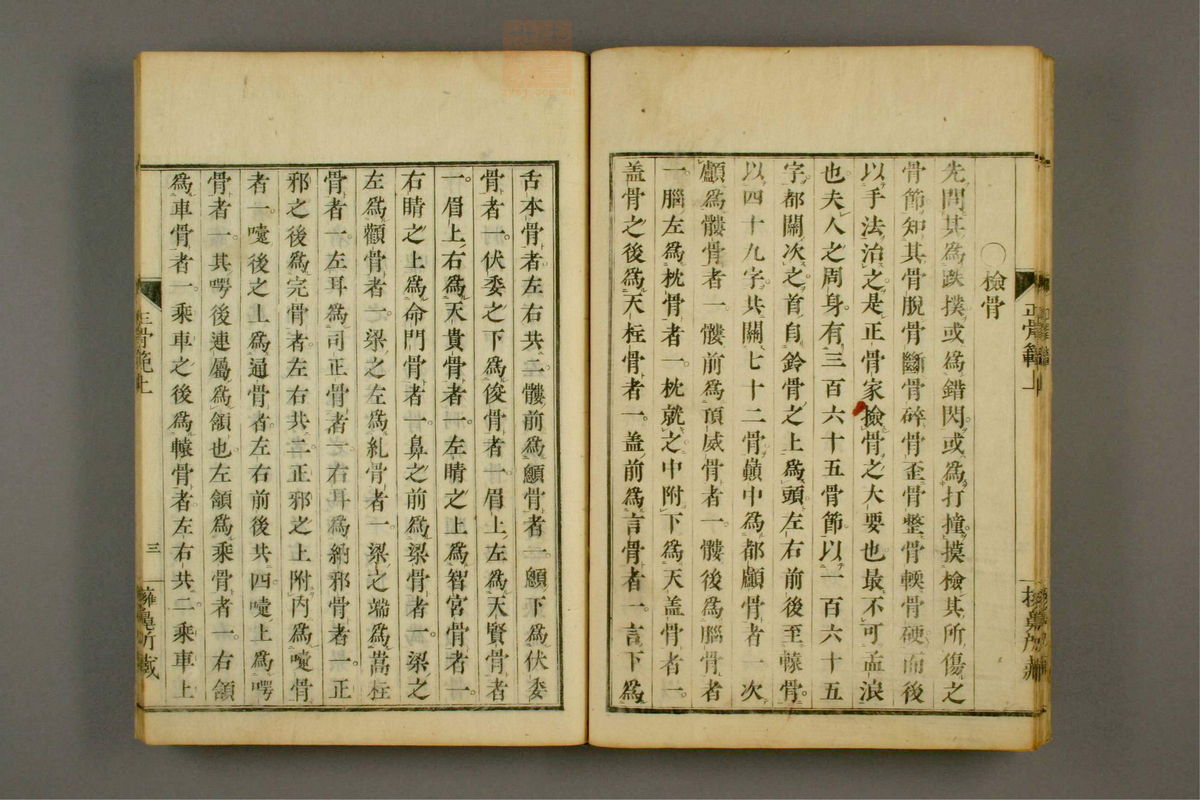 〇檢骨
先問其爲跌撲或爲錯閃或爲打撞摸檢其所傷之
骨節知其骨脫骨斷骨碎骨歪骨整骨輭骨硬而後
以手法治之是正骨家檢骨之大要也最不可孟浪
也夫人之周身有三百六十五骨節以一百六十五
字都關次之首自鈴骨之上爲頭左右前後至轅骨
以四十九字共關七十二骨巔中爲都顱骨者一次
顱爲髏骨者一髏前爲頂威骨者一髏後爲腦骨者
一腦左爲枕骨者一枕就之中附下爲天蓋骨者一
蓋骨之後爲天柱骨者一蓋前爲言骨者一言下爲
正骨範上
舌本骨者左右共二髏前爲顖骨者一顖下爲伏委
骨者一伏委之下爲俊骨者一眉上左爲天賢骨者
一眉上右爲天貴骨者一左睛之上爲智宮骨者一
右睛之上爲命門骨者一鼻之前爲梁骨者一梁之
左爲顴骨者一梁之左爲糺骨者一梁之端爲嵩柱
骨者一左耳爲司正骨者一右耳爲納邪骨者一正
邪之後爲完骨者左右共二正邪之上附内爲嚏骨
者一嚏後之上爲通骨者左右前後共四嚏上爲㗁
骨者一其㗁後連屬爲頷也左頷爲乘骨者一右頷
爲車骨者一乘車之後爲轅骨者左右共二乘車上
正骨範上
三